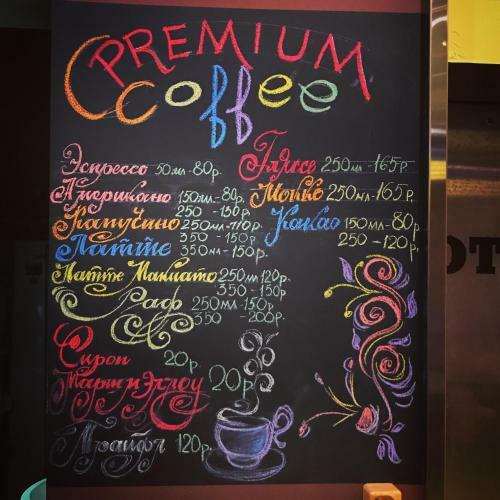 PREMIUM
Coffee
Эспрессо 50мл-80р.
Американо 150мл-80р.
250 - 150р
Капучино 250мл-110р.
350 - 150р
Латте 350мл-150р.
Латте Макиато 250мл 120р.
350 - 150р
Раф 250мл-150р
350 - 200р.
Сироп 20р.
Маршмэллоу 20р
120р.
Гляссе 250мл-165р.
Мокко 250мл-165р.
Какао 150мл-80р
250 - 120р.
ОТ